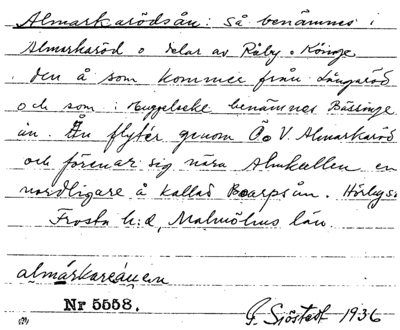 Almarkarödsån: så benämnes i
Almarkaröd o delar av Råby o Könge
den å som kommer från Långaröd
och som i benämnes Bässinge
ån. Ån flyter genom Ö o V. Almarkaröd
och förenar sig nära Almkullen en
nordligare å kallad Boarpsån. Hörbys:
Frosta h:d, Malmöhus län.
Nr 5558.
G. Sjöstedt 1936